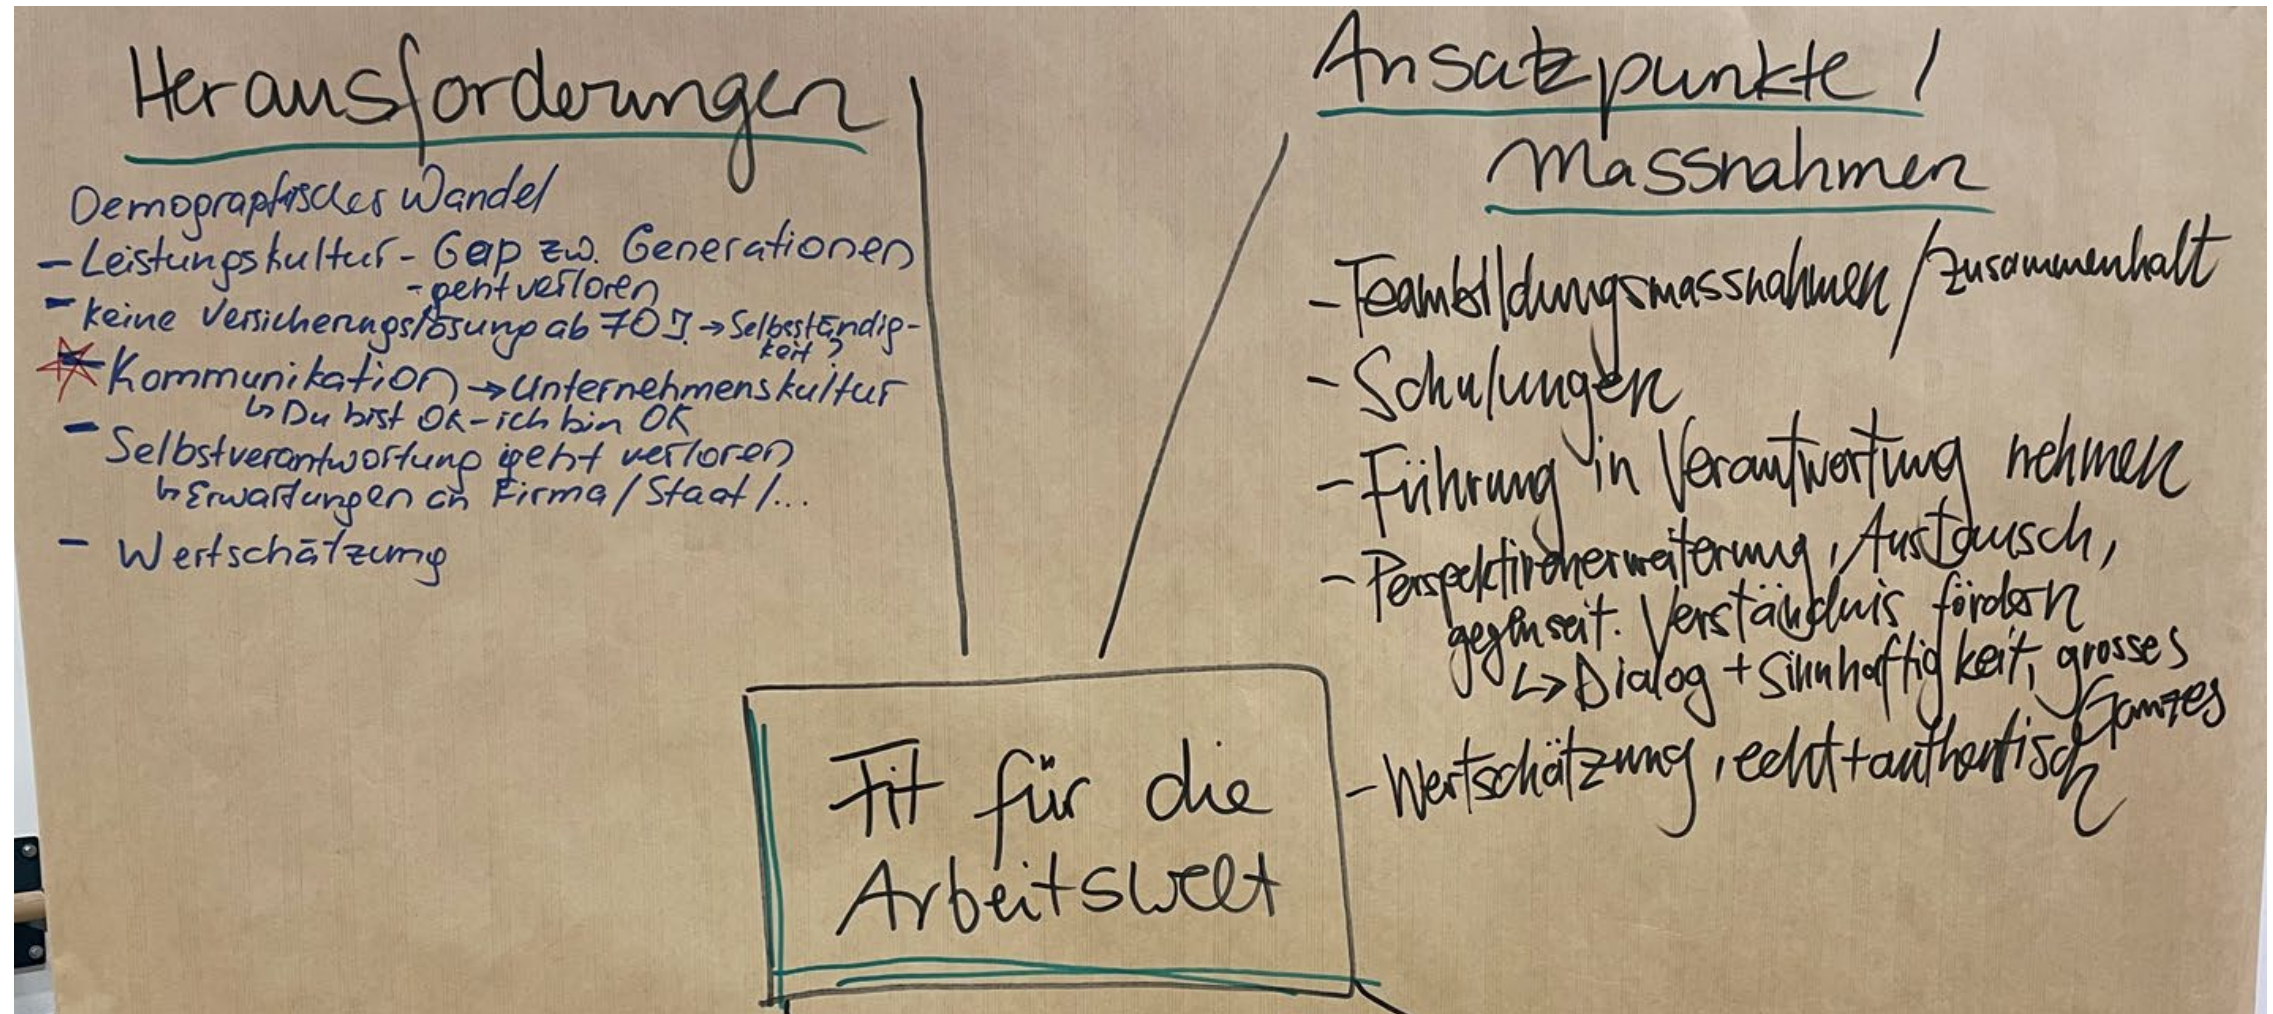 Herausforderungen
Demographischer Wandel
- Leistungskultur - Gap zw. Generationen
- geht verloren
- Keine Versicherungslösung ab 70 J. → Selbständig-
keit?
- Kommunikation → Unternehmenskultur
↳ Du bist OK - ich bin OK
- Selbstverantwortung geht verloren
↳ Erwartungen an Firma / Staat / ...
- Wertschätzung
Ansatzpunkte /
Massnahmen
- Teambildungsmassnahmen / Zusammenhalt
- Schulungen
- Führung in Verantwortung nehmen
- Perspektivenerweiterung, Austausch,
gegenseit. Verständnis fördern
↳ Dialog + Sinnhaftigkeit, grosses
Ganzes
- Wertschätzung, echt + authentisch
Fit für die
Arbeitswelt